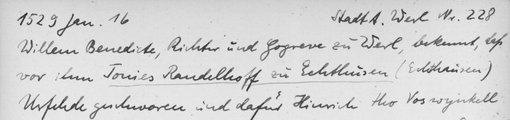 1529 Jan. 16 Stadt A. Werl Nr. 228
Willem Benedicte, Richter und Gogreve zu Werl, bekennt, daß
vor ihm Tonies Randelhoff zu Echthusen (Echthausen)
Urfehde geschworen und dafür Hinrich tho Voswynkell